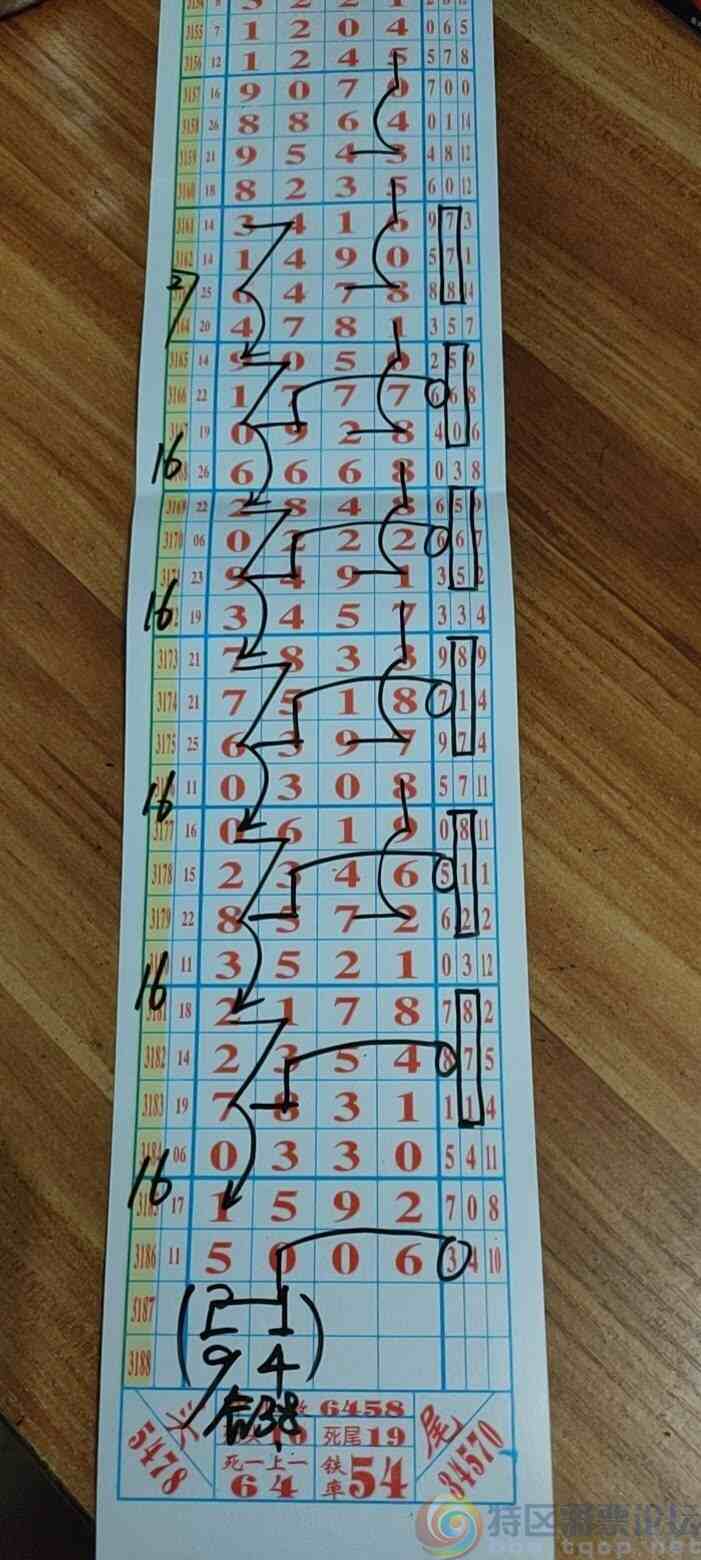 3155 7 1 2 0 4 0 6 5
3156 12 1 2 4 5 5 7 8
3157 16 9 0 7 0 7 0 0
3158 26 8 8 6 4 0 1 14
3159 21 9 5 4 3 4 8 12
3160 18 8 2 3 5 6 0 12
3161 14 3 4 1 6 9 7 3
3162 14 1 4 9 0 5 7 1
25 6 4 7 8 8 8 14
20 4 7 8 1 3 5 7
3165 14 9 0 5 0 2 5 9
3166 22 1 7 7 7 6 6 8
19 0 9 2 8 4 0 6
16
26 6 6 6 8 0 3 8
3169 22 2 8 4 8 6 5 9
3170 06 0 2 2 2 6 6 7
23 9 4 9 1 3 5 2
16
19 3 4 5 7 3 3 4
3173 21 7 8 3 3 9 8 9
3174 21 7 5 1 8 7 1 4
3175 25 6 3 9 7 9 7 4
16
11 0 3 0 8 5 7 11
3177 16 0 6 1 9 0 8 11
3178 15 2 3 4 6 5 1 1
3179 22 8 5 7 2 6 2 2
16
11 3 5 2 1 0 3 12
3181 18 2 1 7 8 7 8 2
3182 14 2 3 5 4 8 7 5
3183 19 7 8 3 1 1 1 4
16
06 0 3 3 0 5 4 11
17 1 5 9 2 7 0 8
3186 11 5 0 0 6 3 4 10
3187 (2 1
3188 9 4)
火 5478
含38 6458
10 死尾 19
死一上一 64
铁車 54
尾 34570
特区彩票论坛
bbs.tqcp.net